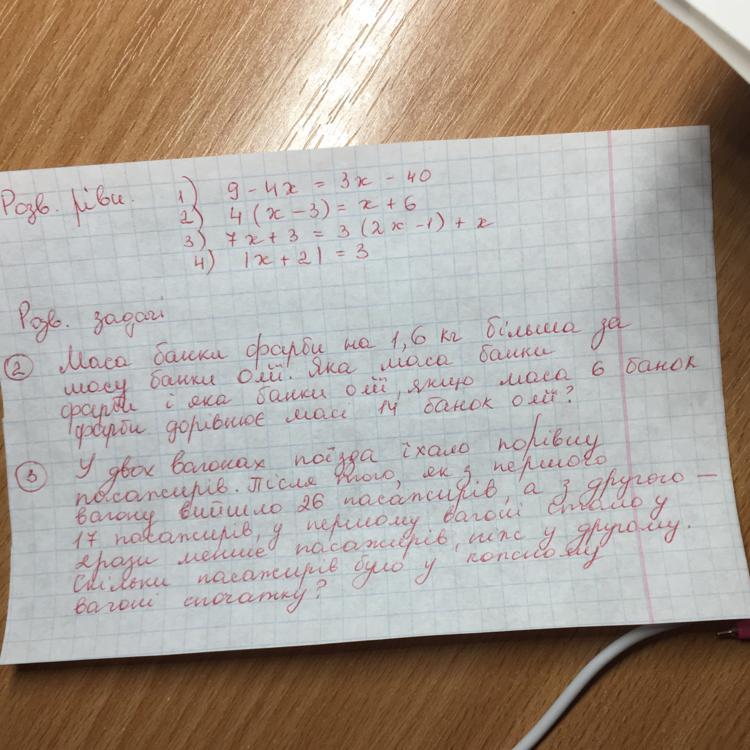 Розв. рівн. 1) 9 - 4x = 3x - 40
2) 4 (x - 3) = x + 6
3) 7x + 3 = 3 (2x - 1) + x
4) |x + 2| = 3
Розв. задачі
② Маса банки фарби на 1,6 кг більша за
масу банки олії. Яка маса банки
фарби і яка банки олії, якщо маса 6 банок
фарби дорівнює масі 14 банок олії?
③ У двох вагонах поїзда їхало порівну
пасажирів. Після того, як з першого
вагону вийшло 26 пасажирів, а з другого —
17 пасажирів, у першому вагоні стало у
рази менше пасажирів, ніж у другому.
Скільки пасажирів було у кожному
вагоні спочатку?